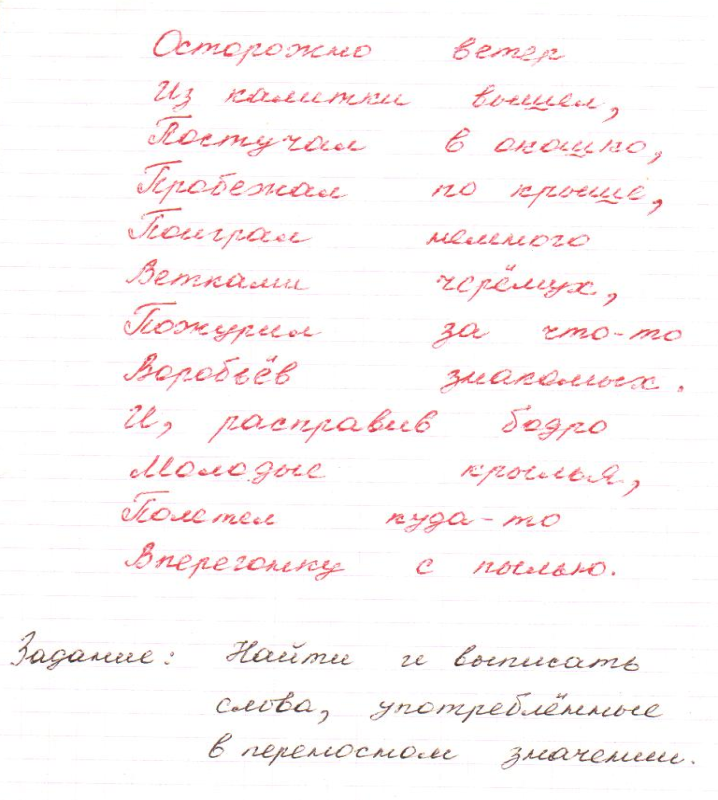 Осторожно ветер
Из калитки вышел,
Постучал в окошко,
Пробежал по крыше,
Поиграл немного
Ветками черёмух,
Пожурил за что-то
Воробьёв знакомых.
И, расправив бодро
Молодые крылья,
Полетел куда-то
Вперегонку с пылью.
Задание: Найти и выписать
слова, употреблённые
в переносном значении.